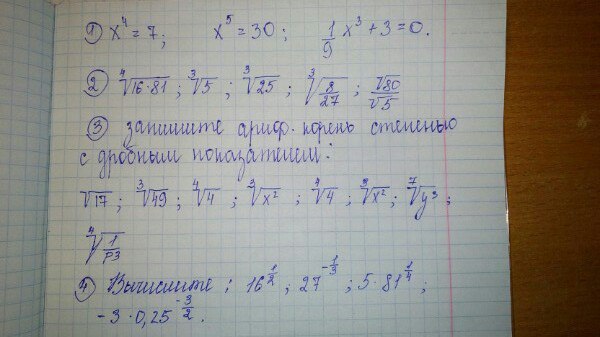 1) x⁴ = 7; x⁵ = 30; 1/9 x³ + 3 = 0.
2) ⁴√16·81; ³√5; ³√25; ³√8/27; √80/√5
3) запишите ариф. корень степенью
с дробным показателем:
√17; ³√49; ⁴√4; ³√x²; ⁴√4; ⁹√x²; ⁷√y³;
⁴√1/p3
4) Вычислите: 16^1/2; 27^-1/3; 5·81^1/4;
-3·0,25^-3/2.